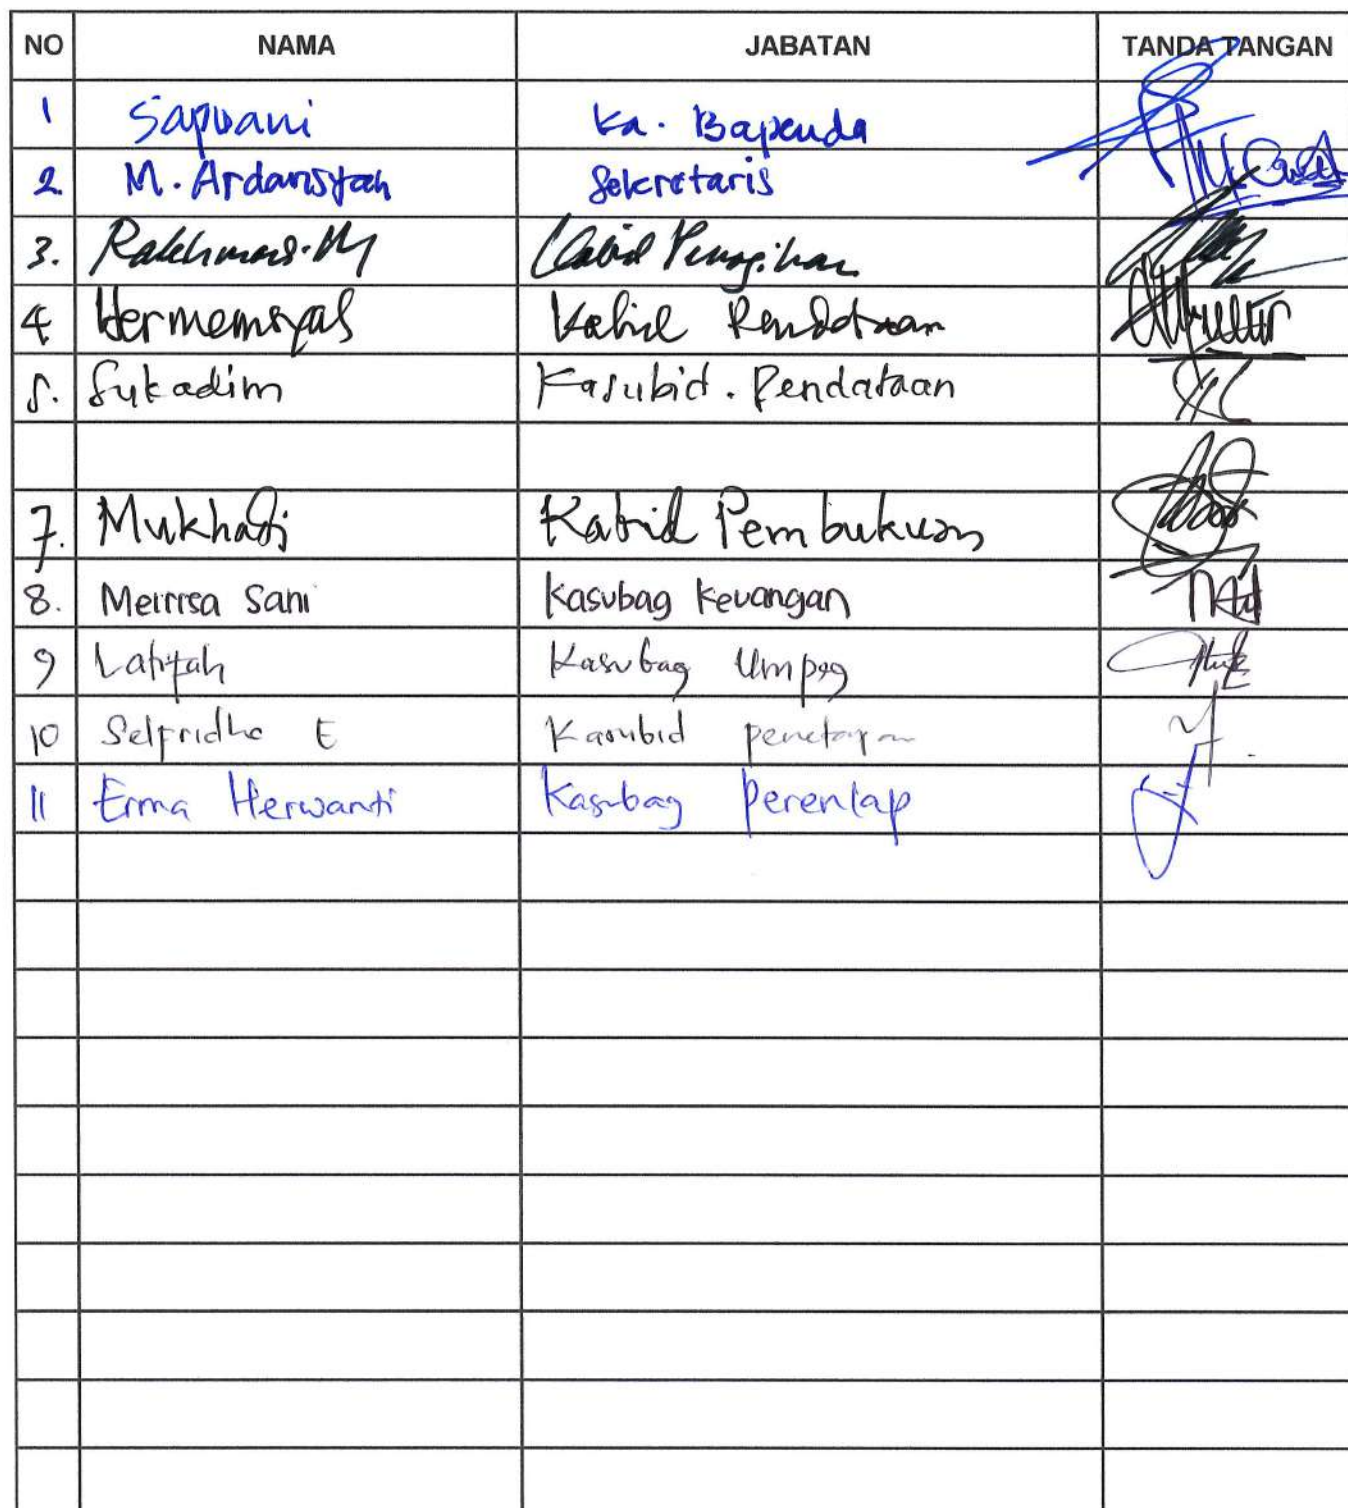 NO NAMA JABATAN TANDA TANGAN
1 Sapuani Ka. Bapenda
2. M. Ardansyah Sekretaris
3. Kabid Penagihan
4. Kabid Pendataan
5. Sukadim Kasubid. Pendataan
7. Mukhadi Kabid Pembukuan
8. Meirisa Sani Kasubag Keuangan
9 Latifah Kasubag Umpeg
10 E Kasubid penetapan
11 Erma Herwanti Kasubag Perenlap